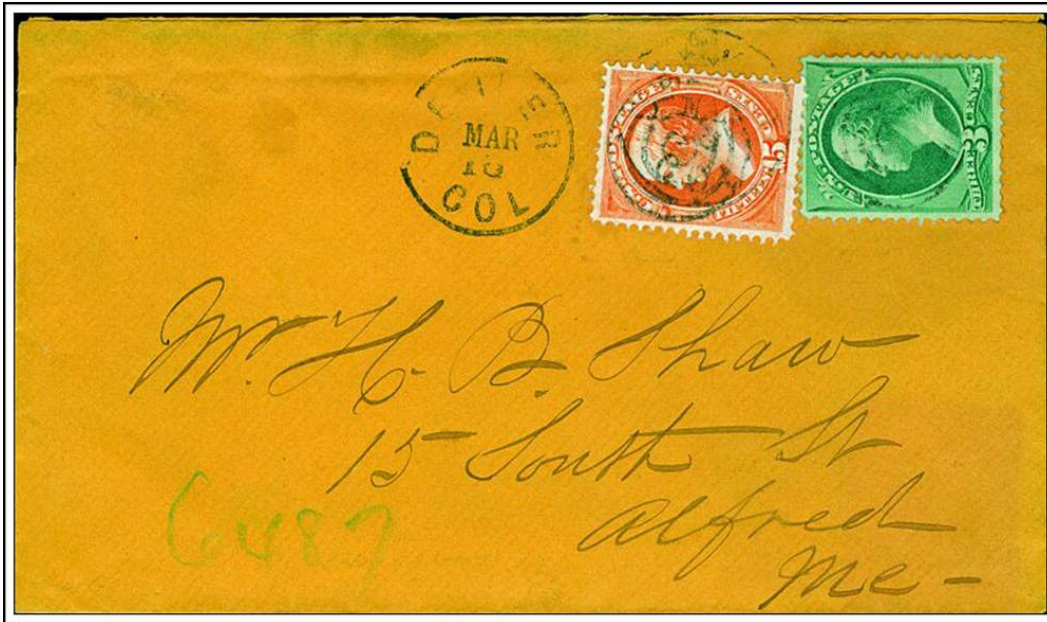 DENVER
MAR
10
COL
U.S. POSTAGE
U.S. POSTAGE
Mr. H. B. Shaw
15 South St
Alfred
Me-
6487